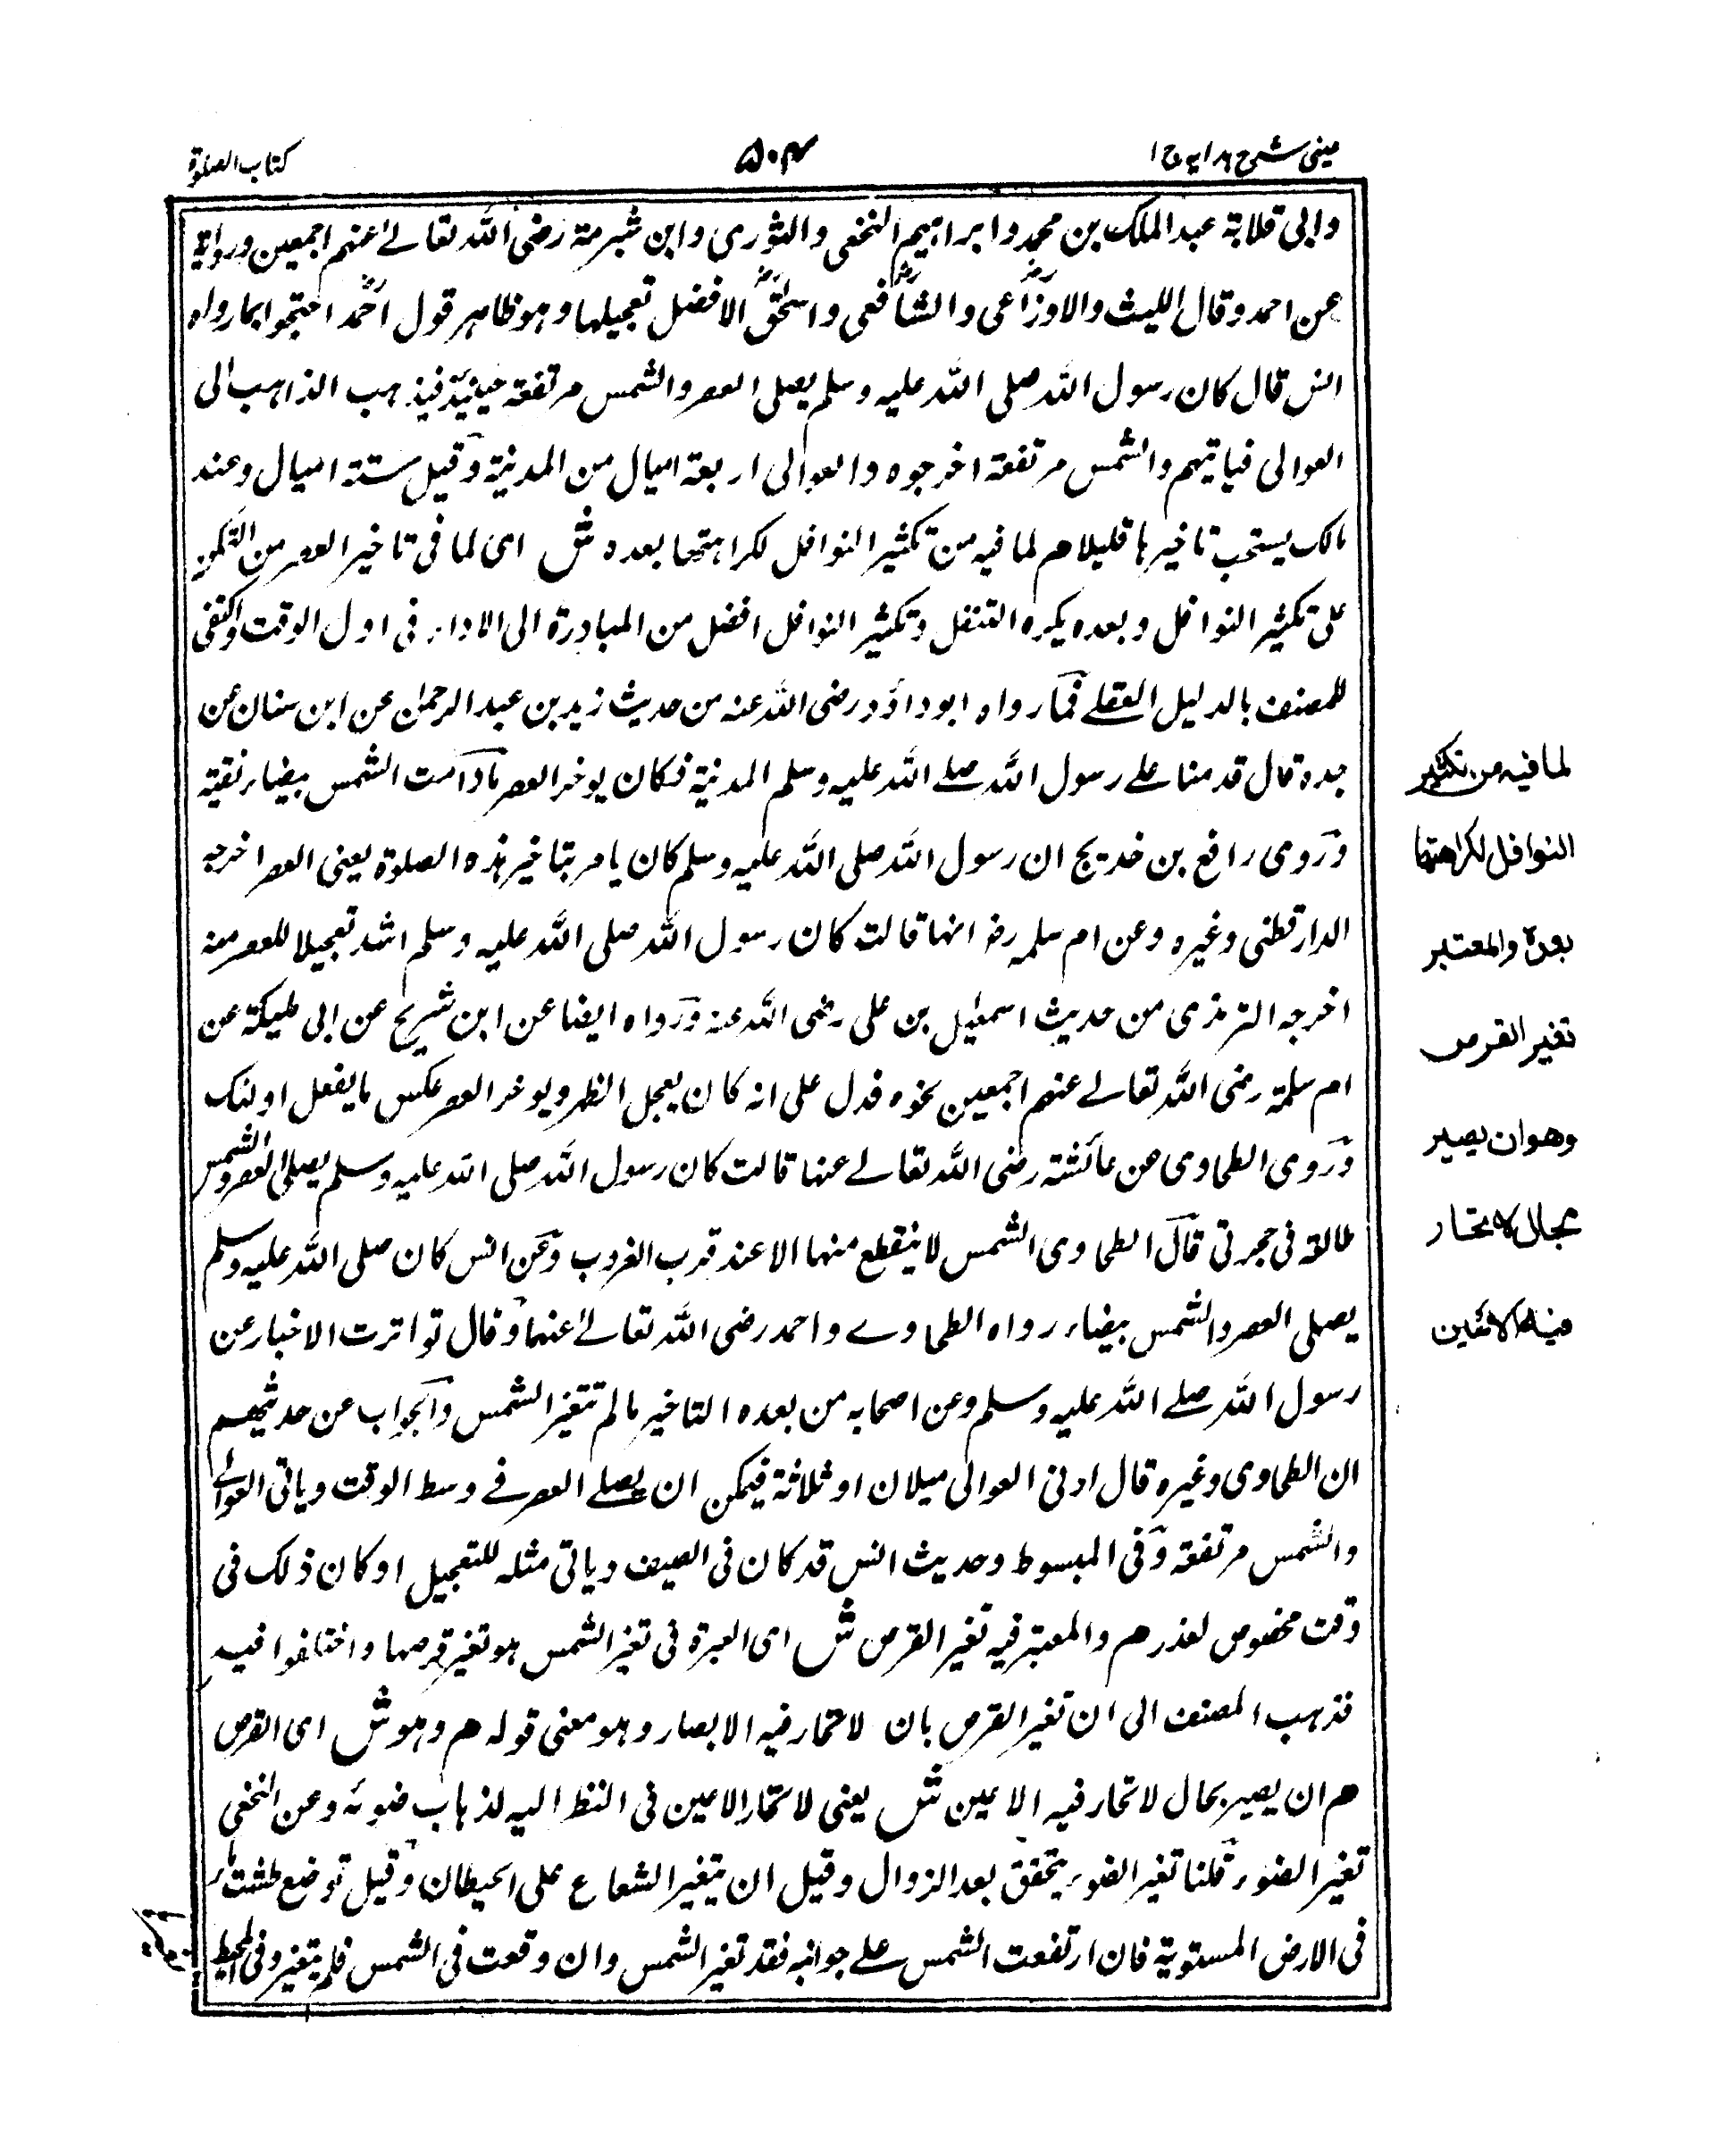 عینی شرح ہدایہ ج ا
۵۰۴
کتاب الصلوۃ
وابی قلابۃ عبد الملک بن محمد وابراہیم النخعی والثوری وابن شبرمۃ رضی اللہ تعالےٰ عنہم اجمعین وروایۃ
عن احمد وقال اللیث والاوزاعی والشافعی واسحٰق الافضل تعجیلہا وہو ظاہر قول احمد احتجوا بما رواہ
انس قال کان رسول اللہ صلی اللہ علیہ وسلم یصلی العصر والشمس مرتفعۃ حینئذ فیذہب الذاہب الی
العوالی فیاتیہم والشمس مرتفعۃ اخرجوہ والعوالی اربعۃ امیال من المدینۃ وقیل ستۃ امیال وعند
مالک یستحب تاخیرہا قلیلا م لما فیہ من تکثیر النوافل لکراہتہا بعدہ ش ای لما فی تاخیر العصر من التمکن
علی تکثیر النوافل وبعدہ یکرہ التنفل وتکثیر النوافل افضل من المبادرۃ الی الاداء فی اول الوقت واکتفی
المصنف بالدلیل العقلے فیما رواہ ابو داؤد رضی اللہ عنہ من حدیث زید بن عبد الرحمٰن عن ابن سنان عن
جدہ قال قدمنا علے رسول اللہ صلے اللہ علیہ وسلم المدینۃ فکان یوخر العصر مادامت الشمس بیضاء نقیۃ
وروی رافع بن خدیج ان رسول اللہ صلی اللہ علیہ وسلم کان یامر بتاخیر ہذہ الصلوۃ یعنی العصر اخرجہ
الدارقطنی وغیرہ وعن ام سلمہ رضـ انہا قالت کان رسول اللہ صلی اللہ علیہ وسلم اشد تعجیلا للعصر منہ
اخرجہ الترمذی من حدیث اسمٰعیل بن علی رضی اللہ عنہ ورواہ ایضا عن ابن شریح عن ابی ملیکۃ عن
ام سلمۃ رضی اللہ تعالےٰ عنہم اجمعین نحوہ فدل علی انہ کان یعجل الظہر ویوخر العصر عکس ما یفعل اولئک
وروی الطحاوی عن عائشۃ رضی اللہ تعالےٰ عنہا قالت کان رسول اللہ صلی اللہ علیہ وسلم یصلی العصر والشمس
طالعۃ فی حجرتی قال الطحاوی الشمس لا ینقطع منہا الا عند قرب الغروب وعن انس کان صلی اللہ علیہ وسلم
یصلی العصر والشمس بیضاء رواہ الطحاوے واحمد رضی اللہ تعالےٰ عنہما وقال تواترت الاخبار عن
رسول اللہ صلے اللہ علیہ وسلم وعن اصحابہ من بعدہ التاخیر مالم تتغیر الشمس والجواب عن حدیثہم
ان الطحاوی وغیرہ قال ادنی العوالی میلان او ثلاثۃ فیمکن ان یصلے العصر فے وسط الوقت ویاتی العوالے
والشمس مرتفعۃ وفی المبسوط وحدیث انس قد کان فی الصیف ویاتی مثلہ للتعجیل او کان ذلک فی
وقت مخصوص لعذر م والمعتبر فیہ تغیر القرص ش ای العبرۃ فی تغیر الشمس ہو تغیر قرصہا واختلفوا فیہ
فذہب المصنف الی ان تغیر القرص بان لا تحار فیہ الابصار وہو معنی قولہ م وہو ش ای القرص
م ان یصیر بحال لا تحار فیہ الاعین ش یعنی لا تتحار الاعین فی النظر الیہ لذہاب ضوئہ وعن النخعی
تغیر الضوء قلنا تغیر الضوء یتحقق بعد الزوال وقیل ان یتغیر الشعاع علی الحیطان وقیل توضع طشت ماء
فی الارض المستویۃ فان ارتفعت الشمس علے جوانبہ فقد تغیر الشمس وان وقعت فی الشمس فلم یتغیر وفی المحیط
لما فیہ من تکثیر
النوافل لکراھتھا
بعدہ والمعتبر
تغیر القرص
وھو ان یصیر
بحال لا تحار
فیہ الاعین